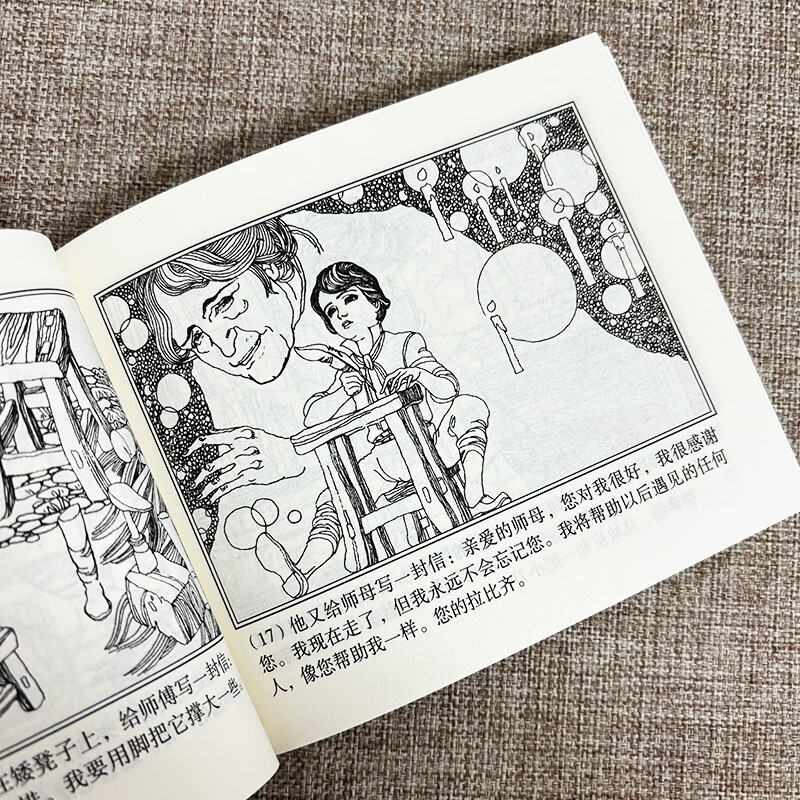 在矮凳子上，给师傅写一封信：
我要用脚把它撑大一些。
(17) 他又给师母写一封信：亲爱的师母，您对我很好，我很感谢
您。我现在走了，但我永远不会忘记您。我将帮助以后遇见的任何
人，像您帮助我一样。您的拉比齐。